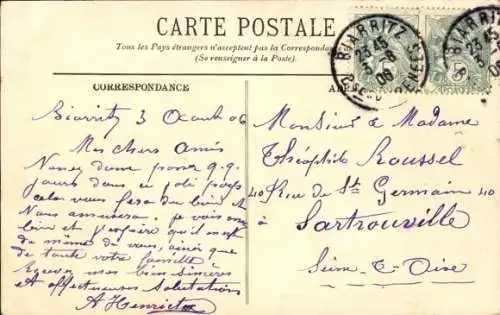 CARTE POSTALE
Tous les Pays étrangers n'acceptent pas la Correspondance
(Se renseigner à la Poste).
BIARRITZ
23 45
3 8
06
BIARRITZ
23 45
3
06
CORRESPONDANCE
Biarritz 3 Août 06
Mes chers Amis
Venez donc passer q.q.
jours dans ce joli pays
cela vous fera du bien et
Nous amusera. je vais
bien et j'espère qu'il en est
de même de vous, ainsi que
de toute votre famille
Recevez mes bien sincères
et affectueuses salutations
A Henriette
Monsieur & Madame
Théophile Roussel
40 Rue de St Germain 40
à Sartrouville
Seine & Oise